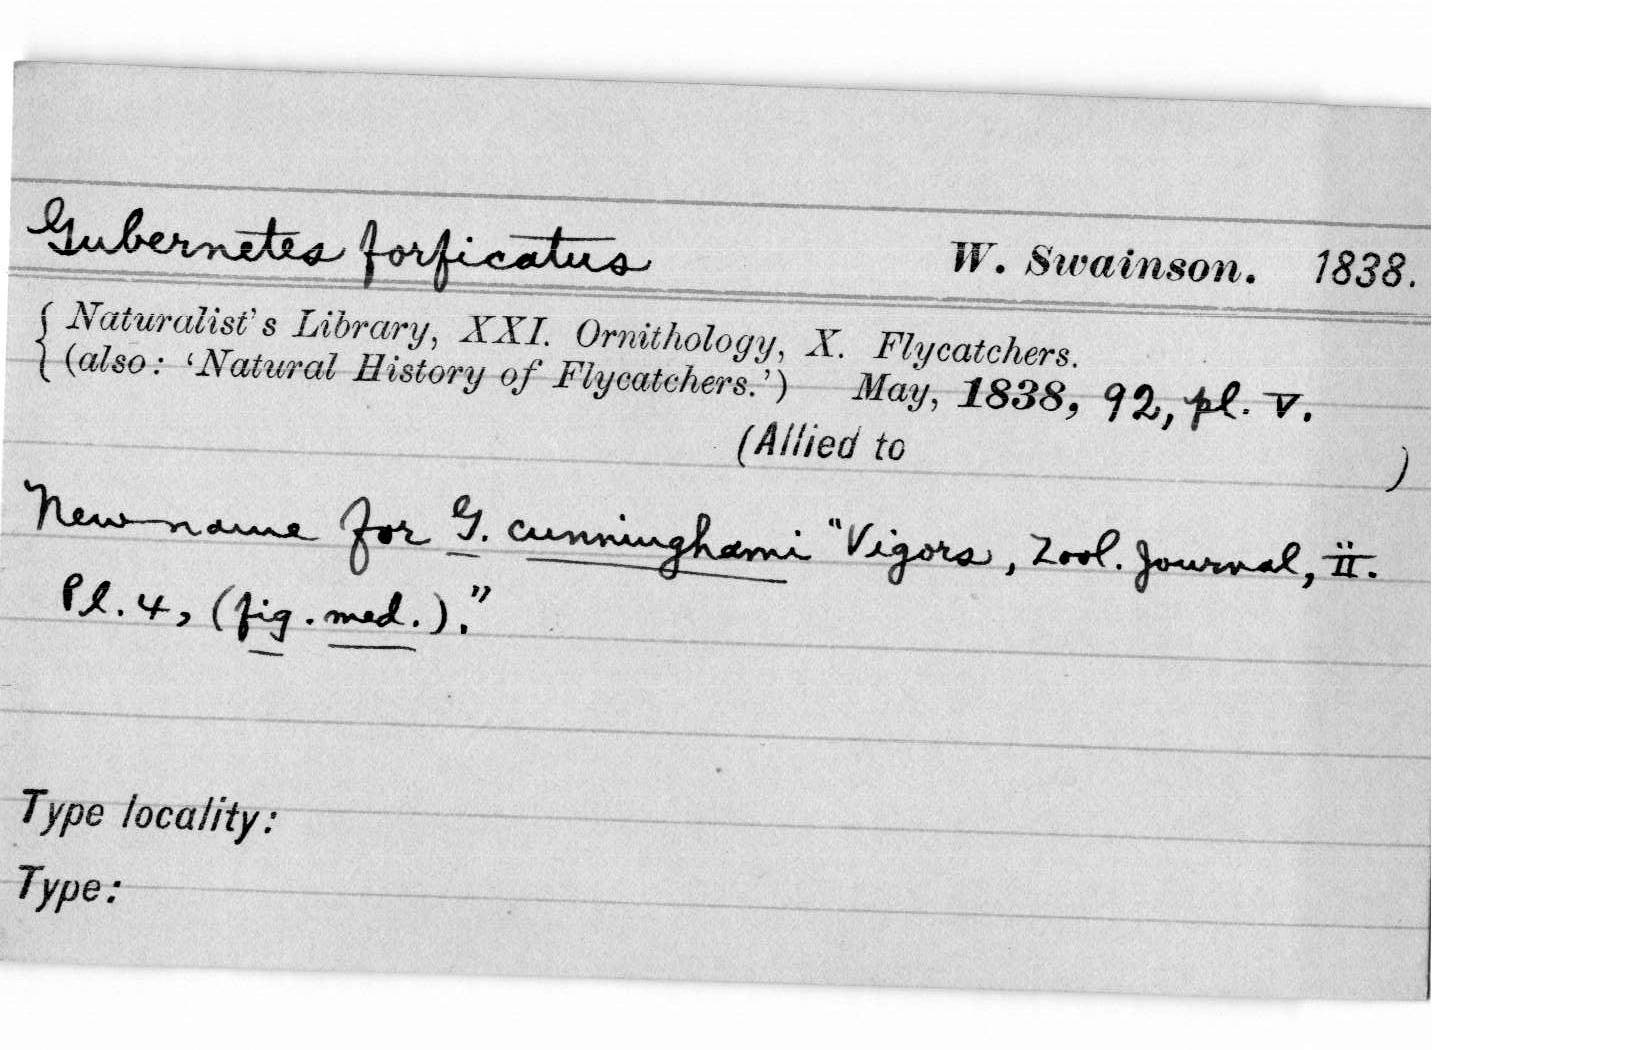 Gubernetes forficatus W. Swainson. 1838.
Naturalist's Library, XXI. Ornithology, X. Flycatchers.
(also: 'Natural History of Flycatchers.') May, 1838, 92, pl. V.
(Allied to )
New name for G. cunninghami "Vigors, Zool. Journal, ii.
Pl. 4, (fig. med.)."
Type locality:
Type: